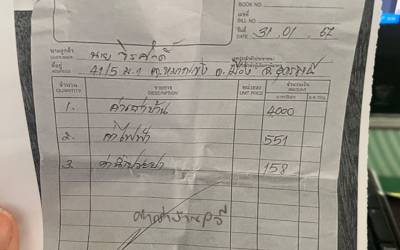 เล่มที่
BOOK NO.
เลขที่
BILL NO.
วันที่ 31 01 67
DATE
นามลูกค้า นาย จิรศักดิ์
CUSTOMER
ที่อยู่ 41/5 ม.1 ต.หมากแข้ง อ.เมือง จ.อุดรธานี
ADDRESS
จำนวน รายการ หน่วยละ จำนวนเงิน
QUANTITY DESCRIPTION UNIT PRICE AMOUNT
1. ค่าเช่าบ้าน 4000
2. ค่าไฟฟ้า 551
3. ค่าน้ำประปา 158